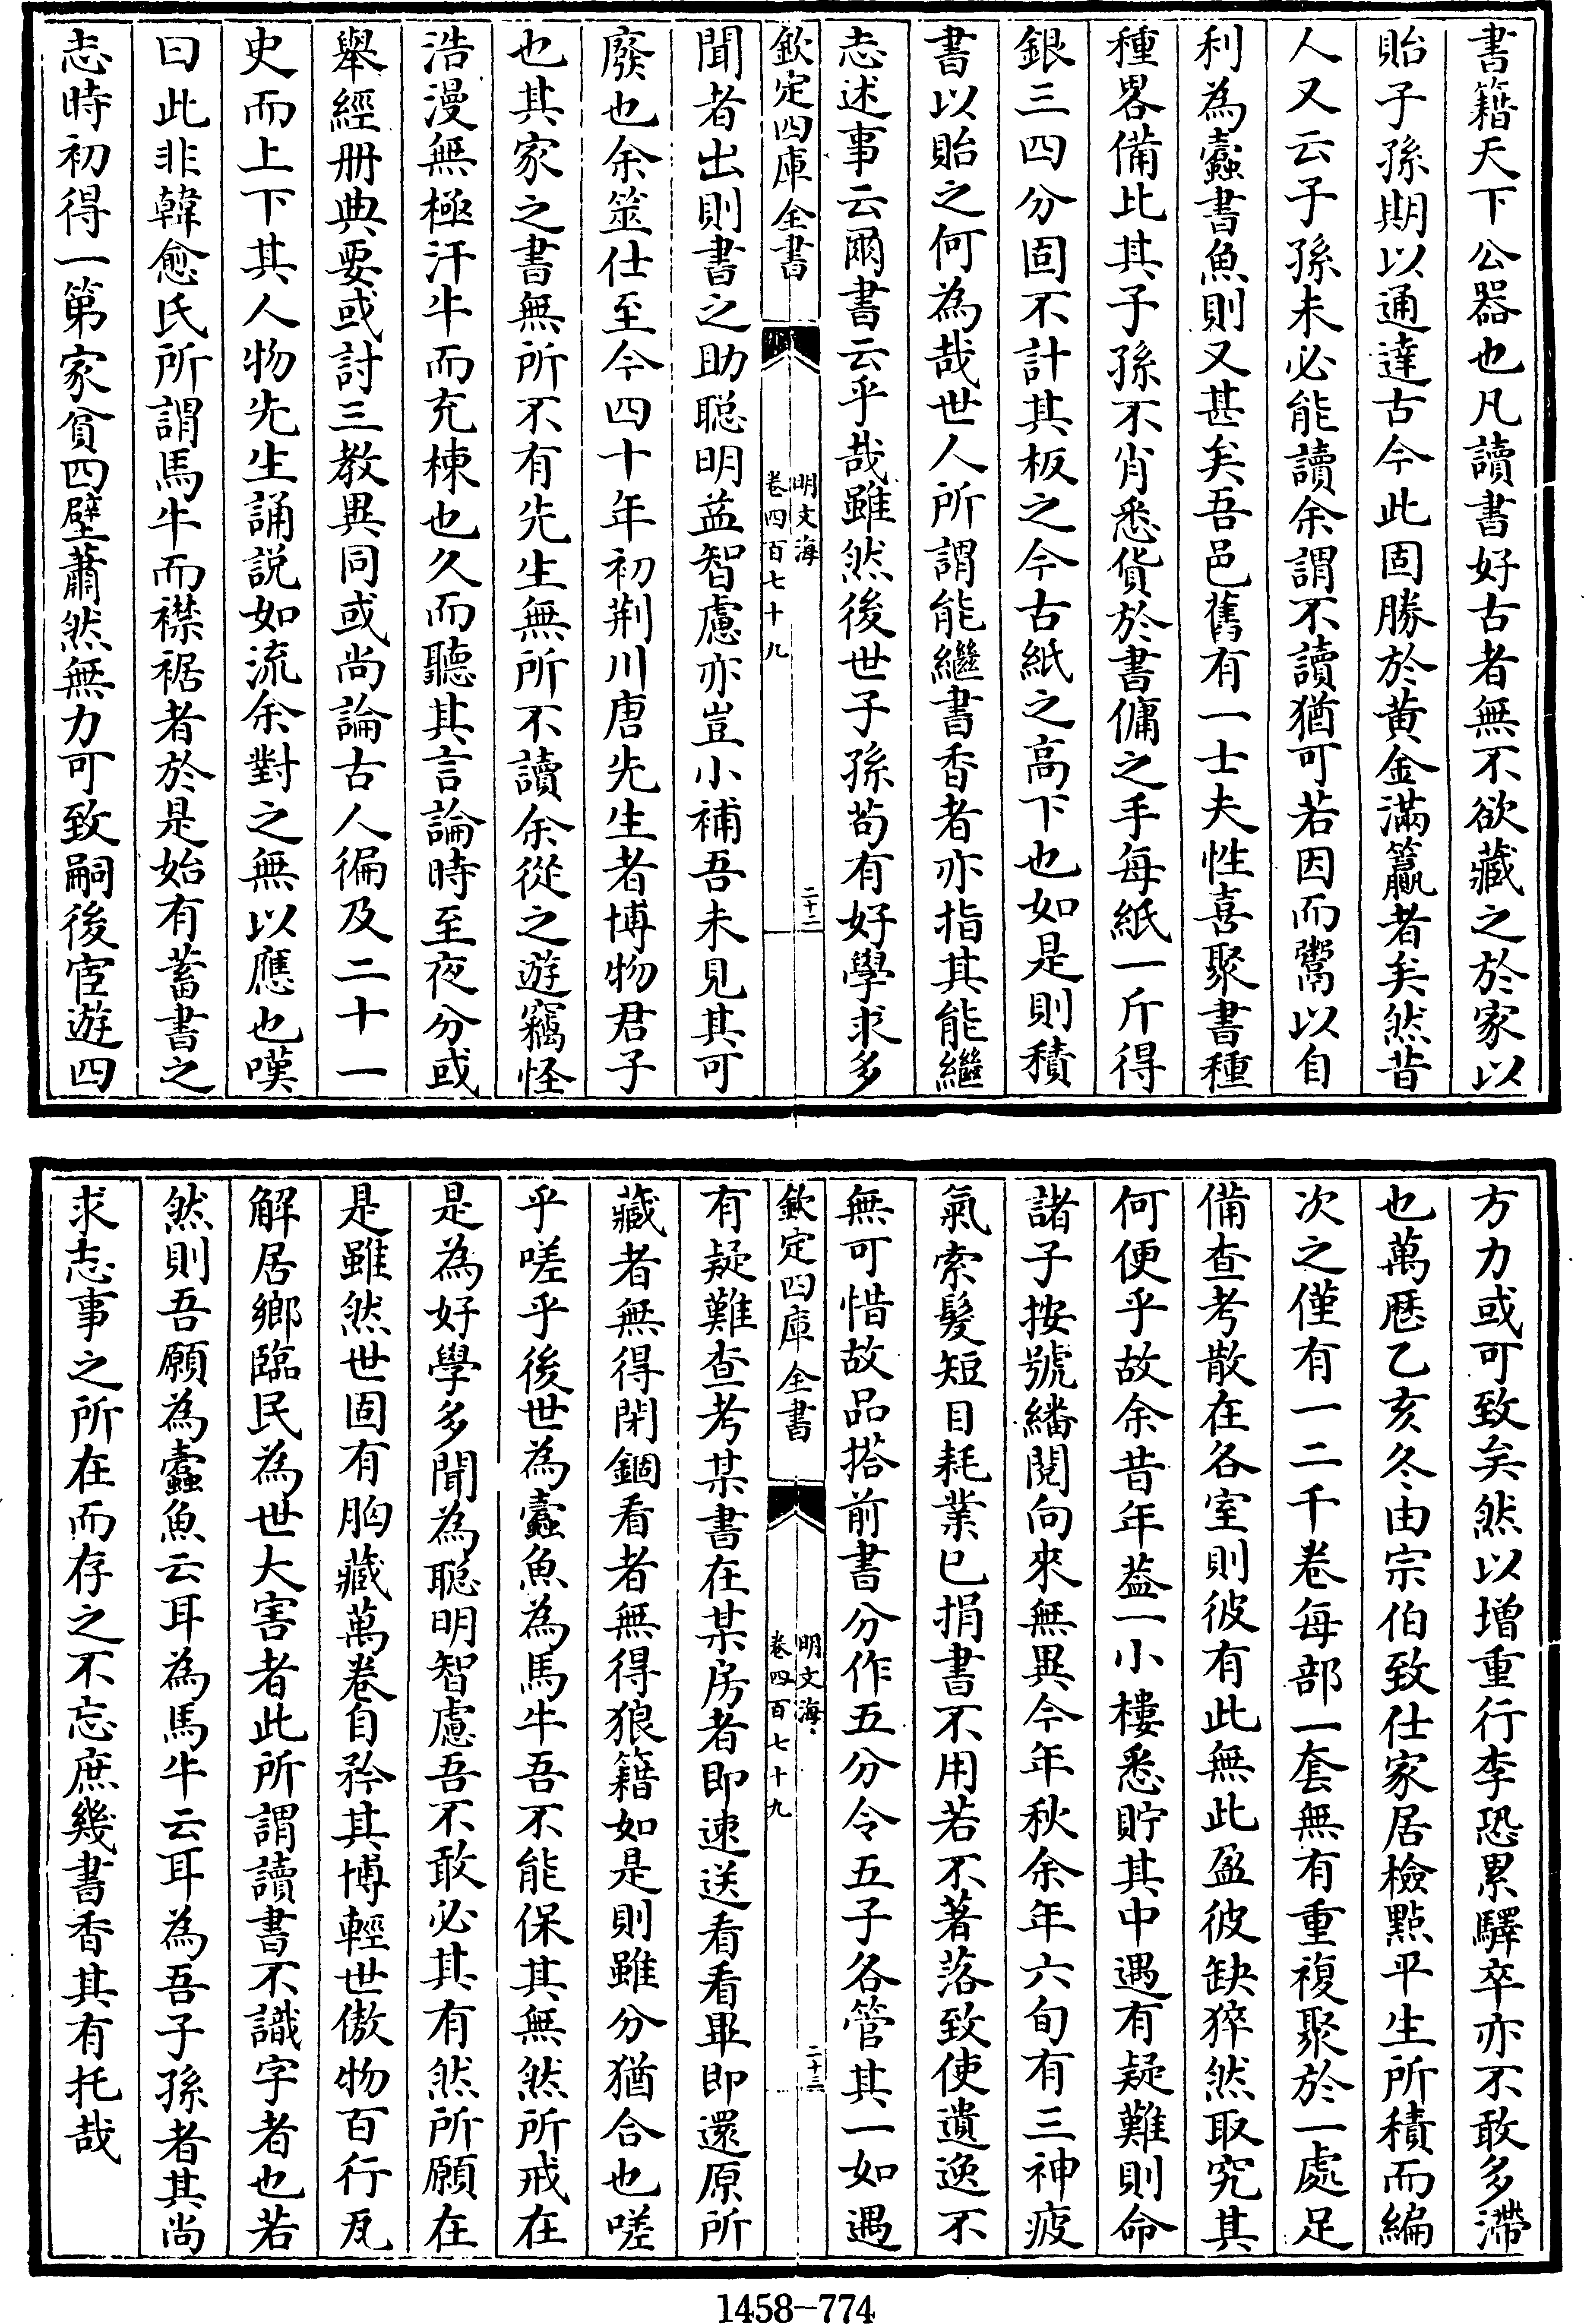 書籍天下公器也凡讀書好古者無不欲藏之於家以
貽子孫期以通達古今此固勝於黄金滿籯者矣然昔
人又云子孫未必能讀余謂不讀猶可若因而鬻以自
利為蠹書魚則又甚矣吾邑舊有一士夫性喜聚書種
種畧備比其子孫不肖悉貨於書傭之手每紙一斤得
銀三四分固不計其板之今古紙之高下也如是則積
書以貽之何為哉世人所謂能繼書香者亦指其能繼
志述事云爾書云乎哉雖然後世子孫茍有好學求多
欽定四庫全書
明文海
卷四百七十九
二十二
聞者出則書之助聪明益智慮亦豈小補吾未見其可
廢也余筮仕至今四十年初荆川唐先生者博物君子
也其家之書無所不有先生無所不讀余從之遊竊怪
浩漫無極汗牛而充棟也久而聽其言論時至夜分或
舉經册典要或討三教異同或尚論古人徧及二十一
史而上下其人物先生誦説如流余對之無以應也嘆
曰此非韓愈氏所謂馬牛而襟裾者於是始有蓄書之
志時初得一第家貧四壁蕭然無力可致嗣後宦遊四
方力或可致矣然以增重行李恐累驛卒亦不敢多滯
也萬厯乙亥冬由宗伯致仕家居檢點平生所積而編
次之僅有一二千卷每部一套無有重複聚於一處足
備查考散在各室則彼有此無此盈彼缺猝然取究其
何便乎故余昔年葢一小樓悉貯其中遇有疑難則命
諸子按號繙閱向來無異今年秋余年六旬有三神疲
氣索髮短目耗業已捐書不用若不著落致使遺逸不
無可惜故品搭前書分作五分令五子各管其一如遇
欽定四庫全書
明文海
卷四百七十九
二十三
有疑難查考某書在某房者即速送看看畢即還原所
藏者無得閉錮看者無得狼籍如是則雖分猶合也嗟
乎嗟乎後世為蠹魚為馬牛吾不能保其無然所戒在
是為好學多聞為聪明智慮吾不敢必其有然所願在
是雖然世固有胸藏萬卷自矜其博輕世傲物百行瓦
解居鄉臨民為世大害者此所謂讀書不識字者也若
然則吾願為蠹魚云耳為馬牛云耳為吾子孫者其尚
求志事之所在而存之不忘庶幾書香其有托哉
1458-774